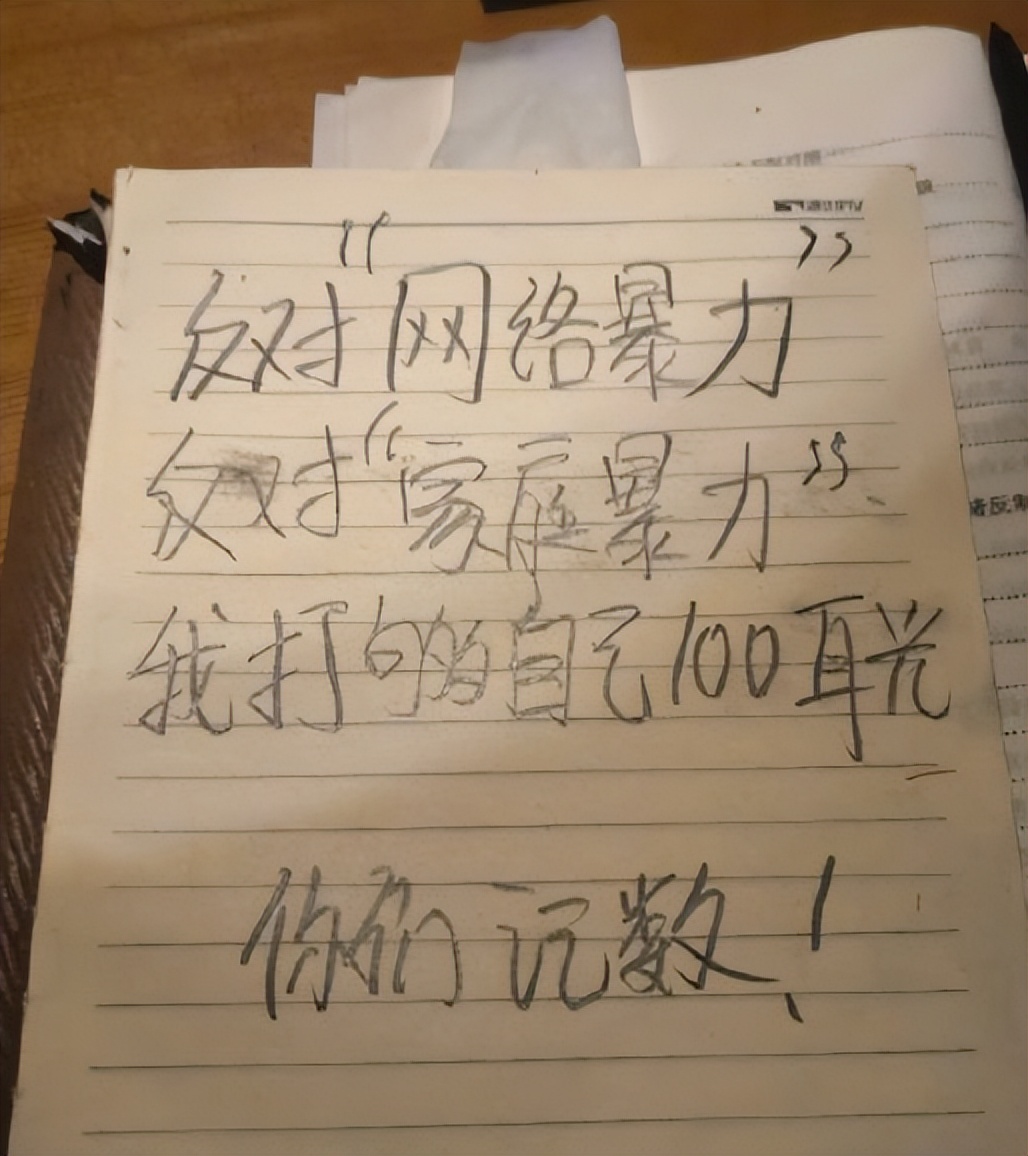 反对“网络暴力”
反对“家庭暴力”
我打够自己100耳光
你们记数!